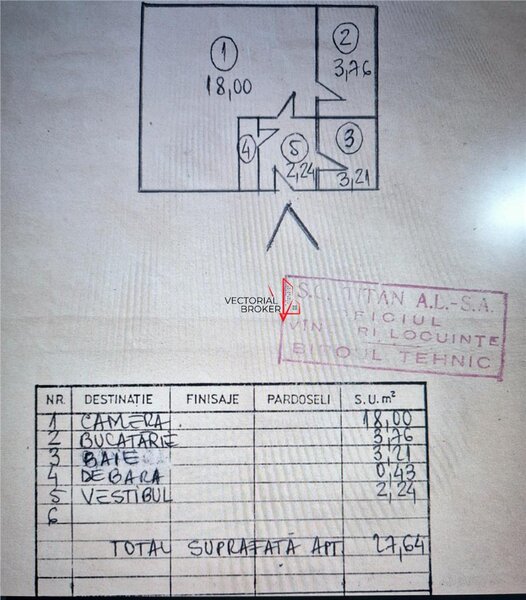 1
18,00
2
3,76
3
3,21
4
5
2,24
VECTORIAL
BROKER
S.C. TITAN A.L.-S.A.
OFICIUL
VINZARI LOCUINTE
BIROUL TEHNIC
NR. DESTINATIE FINISAJE PARDOSELI S.U. m²
1 CAMERA 18,00
2 BUCATARIE 3,76
3 BAIE 3,21
4 DEBARA 0,43
5 VESTIBUL 2,24
6
TOTAL SUPRAFATĂ APT. 27,64